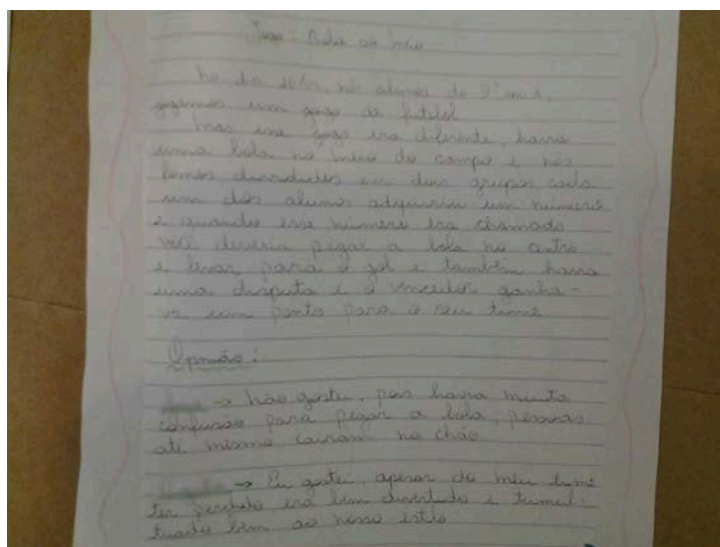 Jogo: Bola ao meio
No dia 20/04, nós alunos do 9º ano A,
jogamos um jogo de futebol
Mas esse jogo era diferente, havia
uma bola no meio do campo e nós
fomos divididos em dois grupos cada
um dos alunos adquiriu um número
e quando esse número era chamado
você deveria pegar a bola no centro
e levar para o gol e também havia
uma disputa e o vencedor ganha-
va um ponto para o seu time
Opinião:
→ Não gostei, pois havia muita
confusão para pegar a bola, pessoas
até mesmo caíram no chão
→ Eu gostei, apesar do meu time
ter perdido era bem divertido e tumul-
tuado bem ao nosso estilo